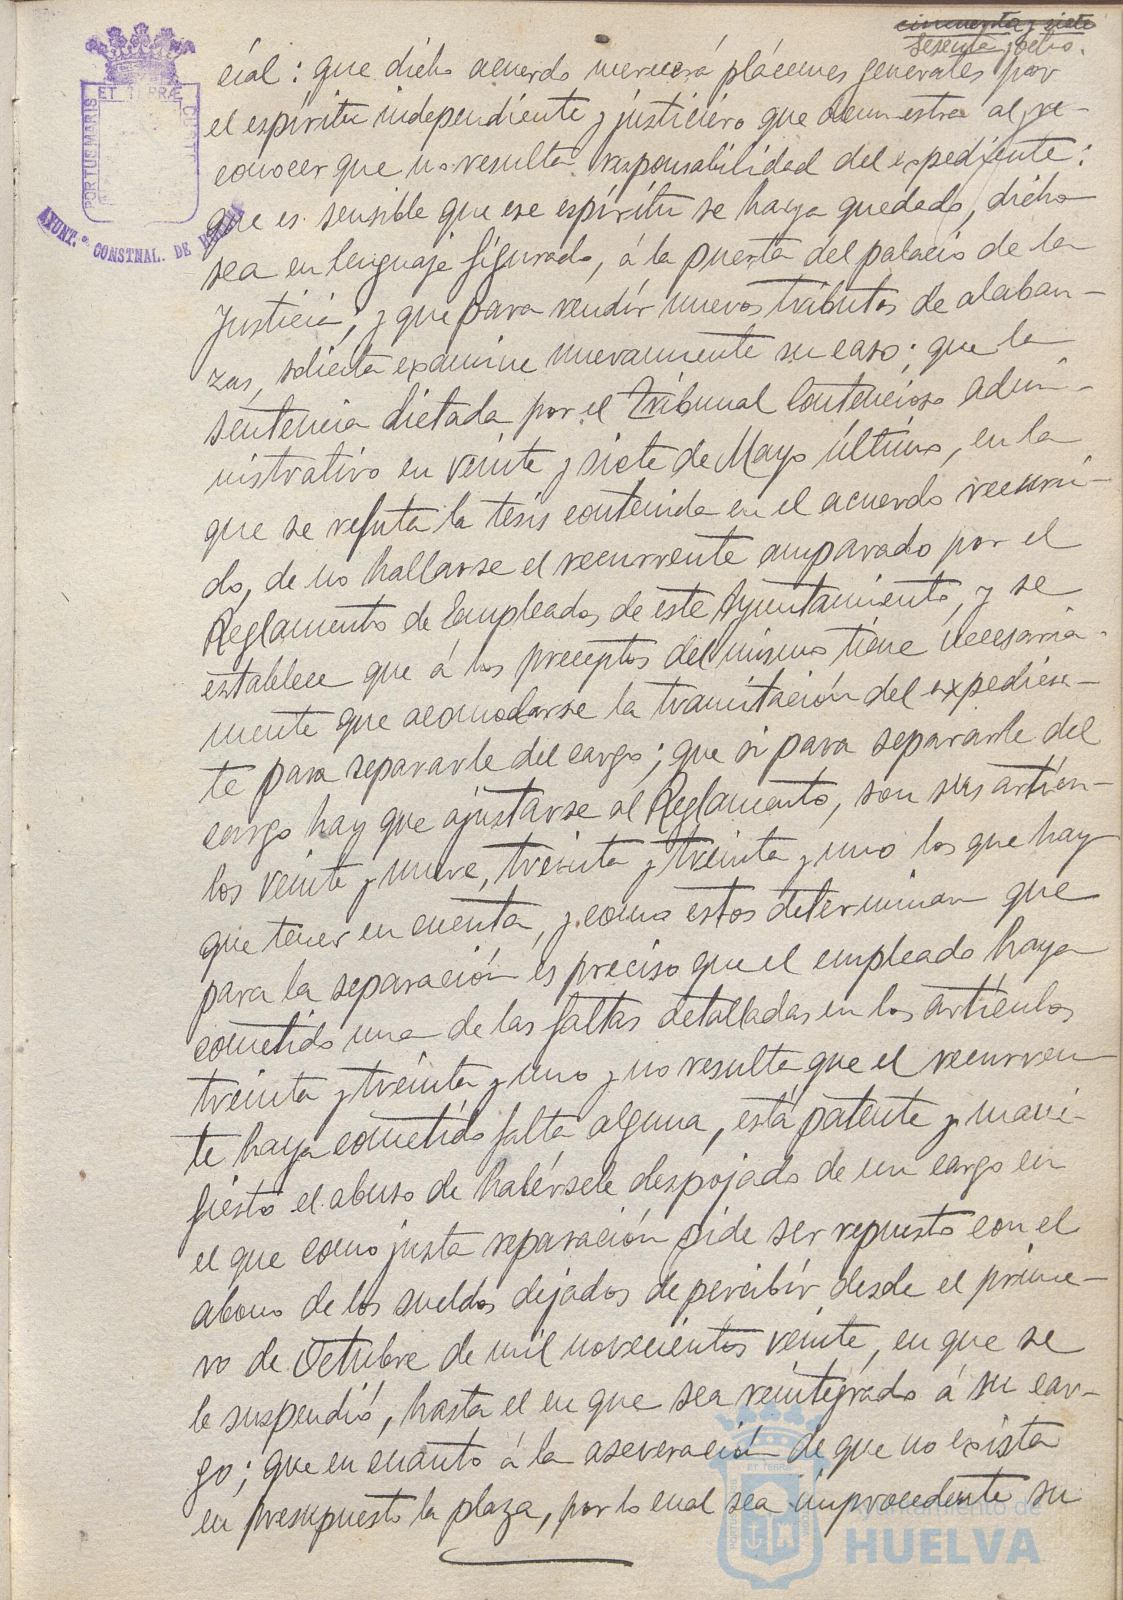 cincuenta y siete
Sesenta y ocho.
PORTUS MARIS ET TERRÆ CUSTO
AYUNT.º CONSTNAL. DE
cial: que dicho acuerdo merecerá plácemes generales por
el espíritu independiente y justiciero que demuestra al re-
conocer que no resulta responsabilidad del expediente:
que es sensible que ese espíritu se haya quedado, dicho
sea en lenguaje figurado, á la puerta del palacio de la
Justicia, y que para rendir nuevos tributos de alaban-
zas, solicita examine nuevamente su caso; que la
sentencia dictada por el Tribunal Contencioso admi-
nistrativo en veinte y siete de Mayo último, en la
que se refuta la tesis contenida en el acuerdo recurri-
do, de no hallarse el recurrente amparado por el
Reglamento de Empleados de este Ayuntamiento, y se
establece que á los preceptos del mismo tiene necesaria-
mente que acomodarse la tramitación del expedien-
te para separarle del cargo; que si para separarle del
cargo hay que ajustarse al Reglamento, son sus artícu-
los veinte y nueve, treinta y treinta y uno los que hay
que tener en cuenta, y como estos determinan que
para la separación es preciso que el empleado haya
cometido una de las faltas detalladas en los artículos
treinta y treinta y uno y no resulta que el recurren
te haya cometido falta alguna, está patente y mani-
fiesto el abuso de habérsele despojado de un cargo en
el que como justa reparación pide ser repuesto con el
abono de los sueldos dejados de percibir desde el prime-
ro de Octubre de mil novecientos veinte, en que se
le suspendió, hasta el en que sea reintegrado á su car-
go; que en cuanto á la aseveración de que no exista
en presupuesto la plaza, por lo cual sea improcedente su
Ayuntamiento de
HUELVA